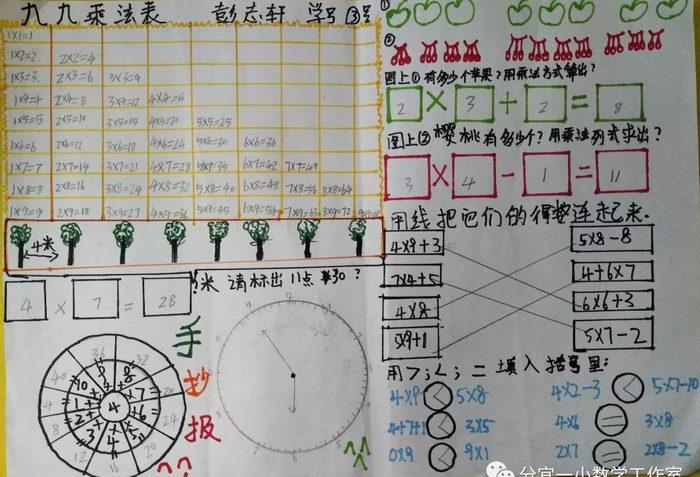 九九乘法表 彭志轩 学号13号
1×1=1
1×2=2 2×2=4
1×3=3 2×3=6 3×3=9
1×4=4 2×4=8 3×4=12 4×4=16
1×5=5 2×5=10 3×5=15 4×5=20 5×5=25
1×6=6 2×6=12 3×6=18 4×6=24 5×6=30 6×6=36
1×7=7 2×7=14 3×7=21 4×7=28 5×7=35 6×7=42 7×7=49
1×8=8 2×8=16 3×8=24 4×8=32 5×8=40 6×8=48 7×8=56 8×8=64
1×9=9 2×9=18 3×9=27 4×9=36 5×9=45 6×9=54 7×9=63 8×9=72
4米
4×7=28 米
请标出11点30?
手抄报
36 32
40 28
4 24
8 20
12 16
10 9 8
1 4 ×7=
2 ×6=
3 4 5
①
②
图上①有多少个苹果?用乘法方式算出?
2×3+2=8
图上②樱桃有多少个?用乘法列式求出?
3×4-1=11
用线把它们的得数连起来.
4×9+3 5×8-8
7×4+5 4+6×7
4×8 6×6+3
5×9+1 5×7-2
用>;<;=填入括号里:
4×9<5×8 4×2-3<5×7-10
4+7+1<3×5 4×6=3×8
0×9<9×1 2×7=2×8-2
分宜一小数学工作室